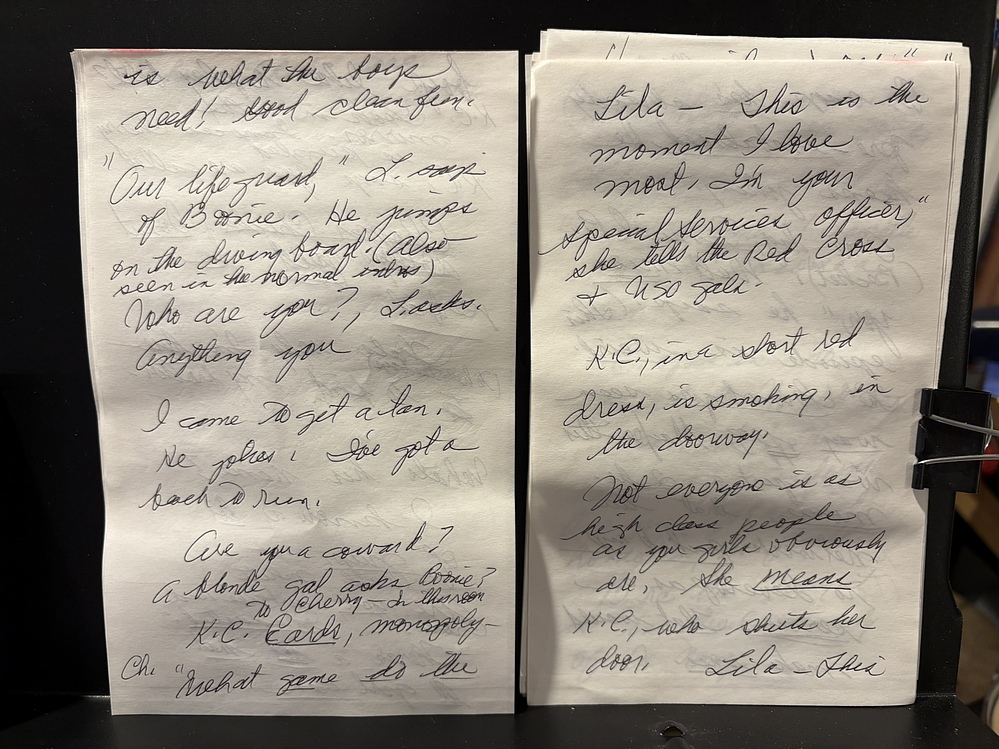 is what the boys
need! Good clean fun.
"Our lifeguard," L. says
of Boonie. He jumps
on the diving board. (Also
seen in the normal intros)
Who are you?, L. asks.
Anything you
I came to get a tan,
He jokes. I've got a
beach to run.
Are you a coward?
A blonde gal asks Boonie?
to Cherry - In this room
K.C. Cards, monopoly-
Ch. "What game do the
Lila - This is the
moment I love
most. I'm your
special services officer,"
she tells the Red Cross
+ USO gals.
K.C., in a short red
dress, is smoking, in
the doorway.
Not everyone is as
high class people
as you girls obviously
are, she means
K.C., who shuts her
door. Lila - This